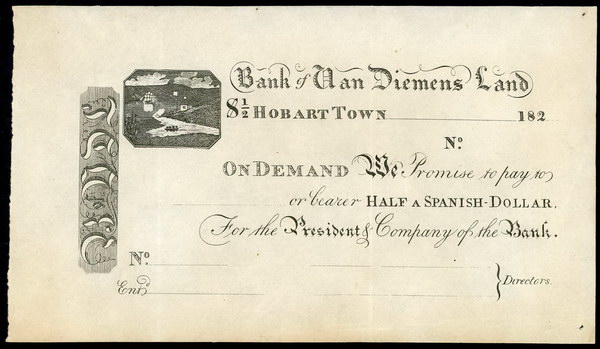 Bank of Van Diemens Land
$½ HOBART TOWN 182
No.
ON DEMAND We Promise to pay to
or bearer HALF A SPANISH-DOLLAR.
For the President & Company of the Bank.
No.
Entd.
Directors.
B of VDL